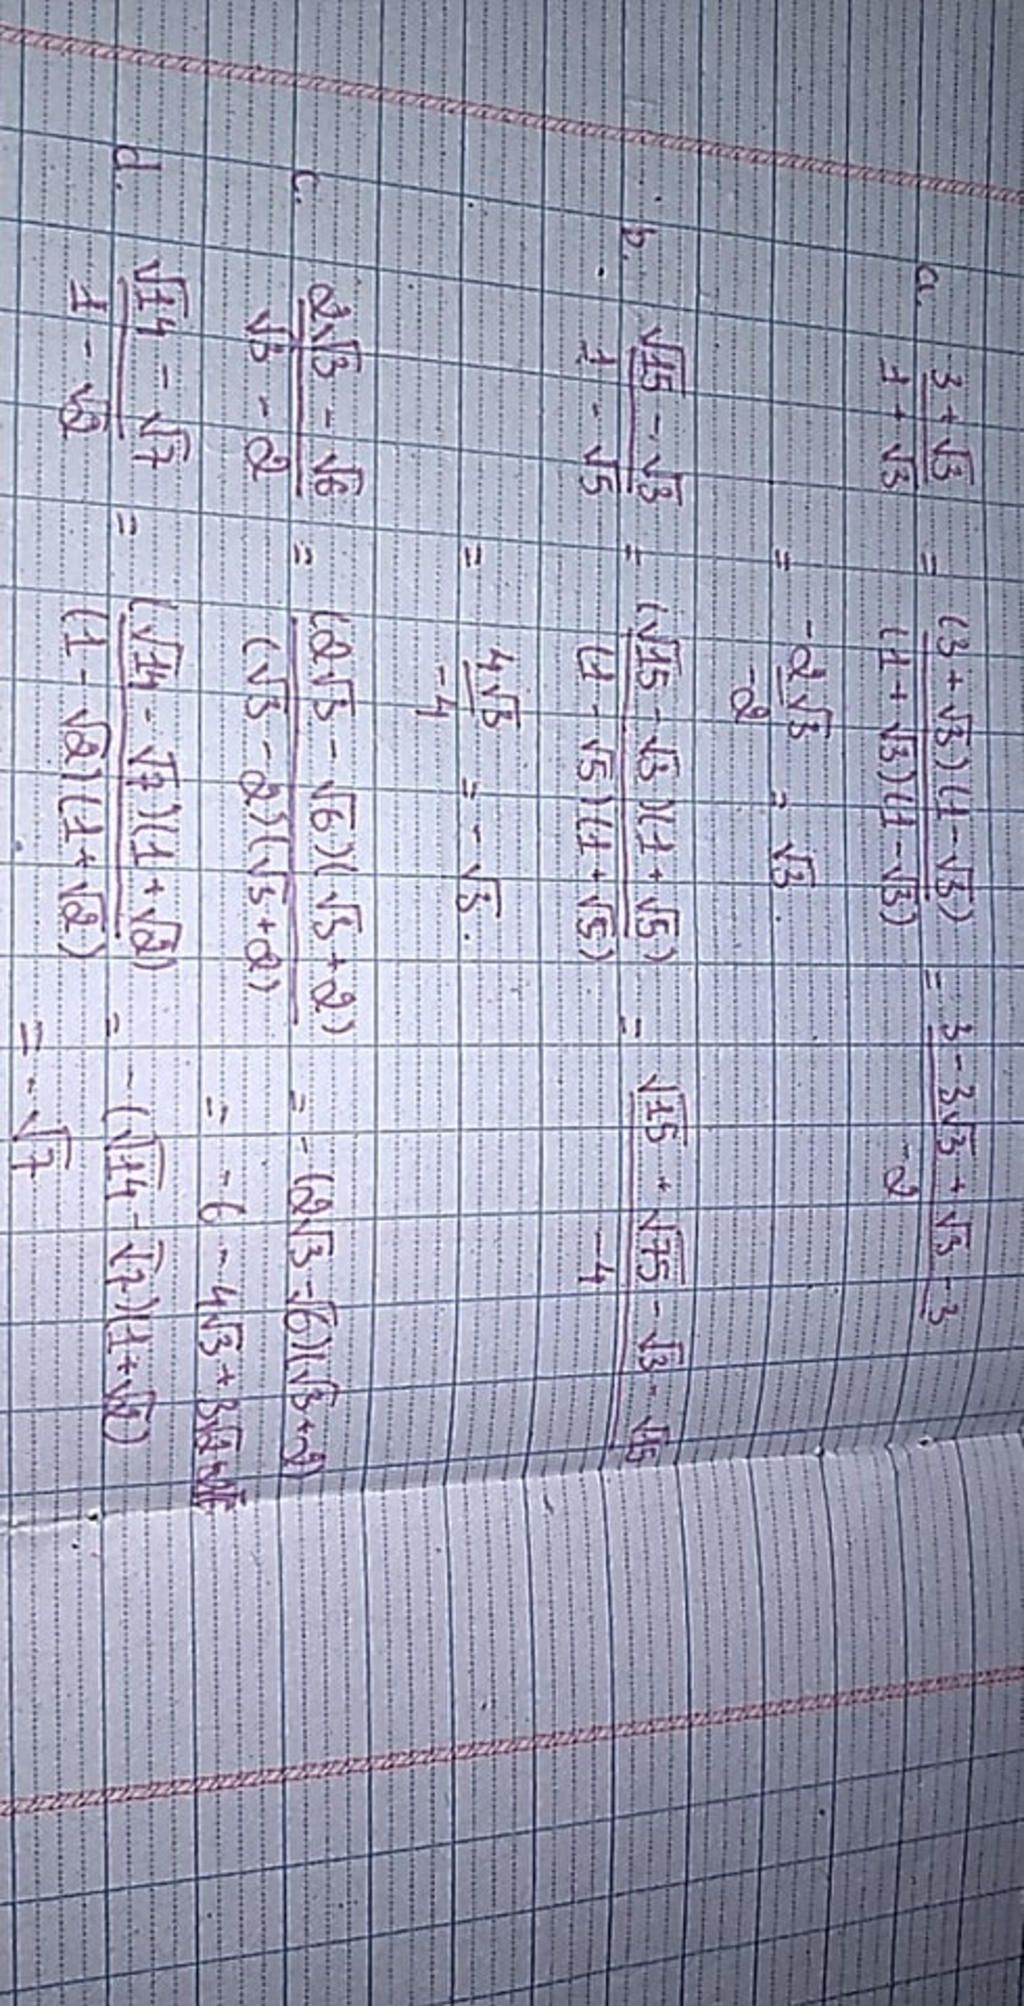 a. (3 + √3)/(1 + √3) = ((3 + √3)(1 - √3))/((1 + √3)(1 - √3)) = (3 - 3√3 + √3 - 3)/(-2)
= (-2√3)/(-2) = √3.
b. (√15 - √3)/(1 - √5) = ((√15 - √3)(1 + √5))/((1 - √5)(1 + √5)) = (√15 + √75 - √3 - √15)/(-4)
= (4√3)/(-4) = -√3.
c. (2√3 - √6)/(√3 - 2) = ((2√3 - √6)(√3 + 2))/((√3 - 2)(√3 + 2)) = -(2√3 - √6)(√3 + 2)
= -6 - 4√3 + 3√2
d. (√14 - √7)/(1 - √2) = ((√14 - √7)(1 + √2))/((1 - √2)(1 + √2)) = -(√14 - √7)(1 + √2)
= -√7